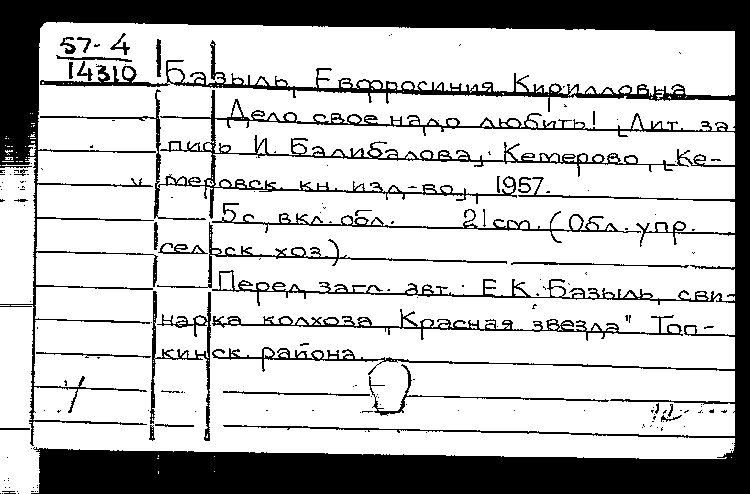 57-4
14310
Базыль, Евфросиния Кирилловна
Дело свое надо любить! [Лит. за-
пись И. Балибалова]. Кемерово, [Ке-
меровск. кн. изд-во], 1957.
5 с, вкл. обл. 21 cm. (Обл. упр.
сельск. хоз.).
Перед загл. авт.: Е.К. Базыль, сви-
нарка колхоза "Красная звезда" Топ-
кинск. района.